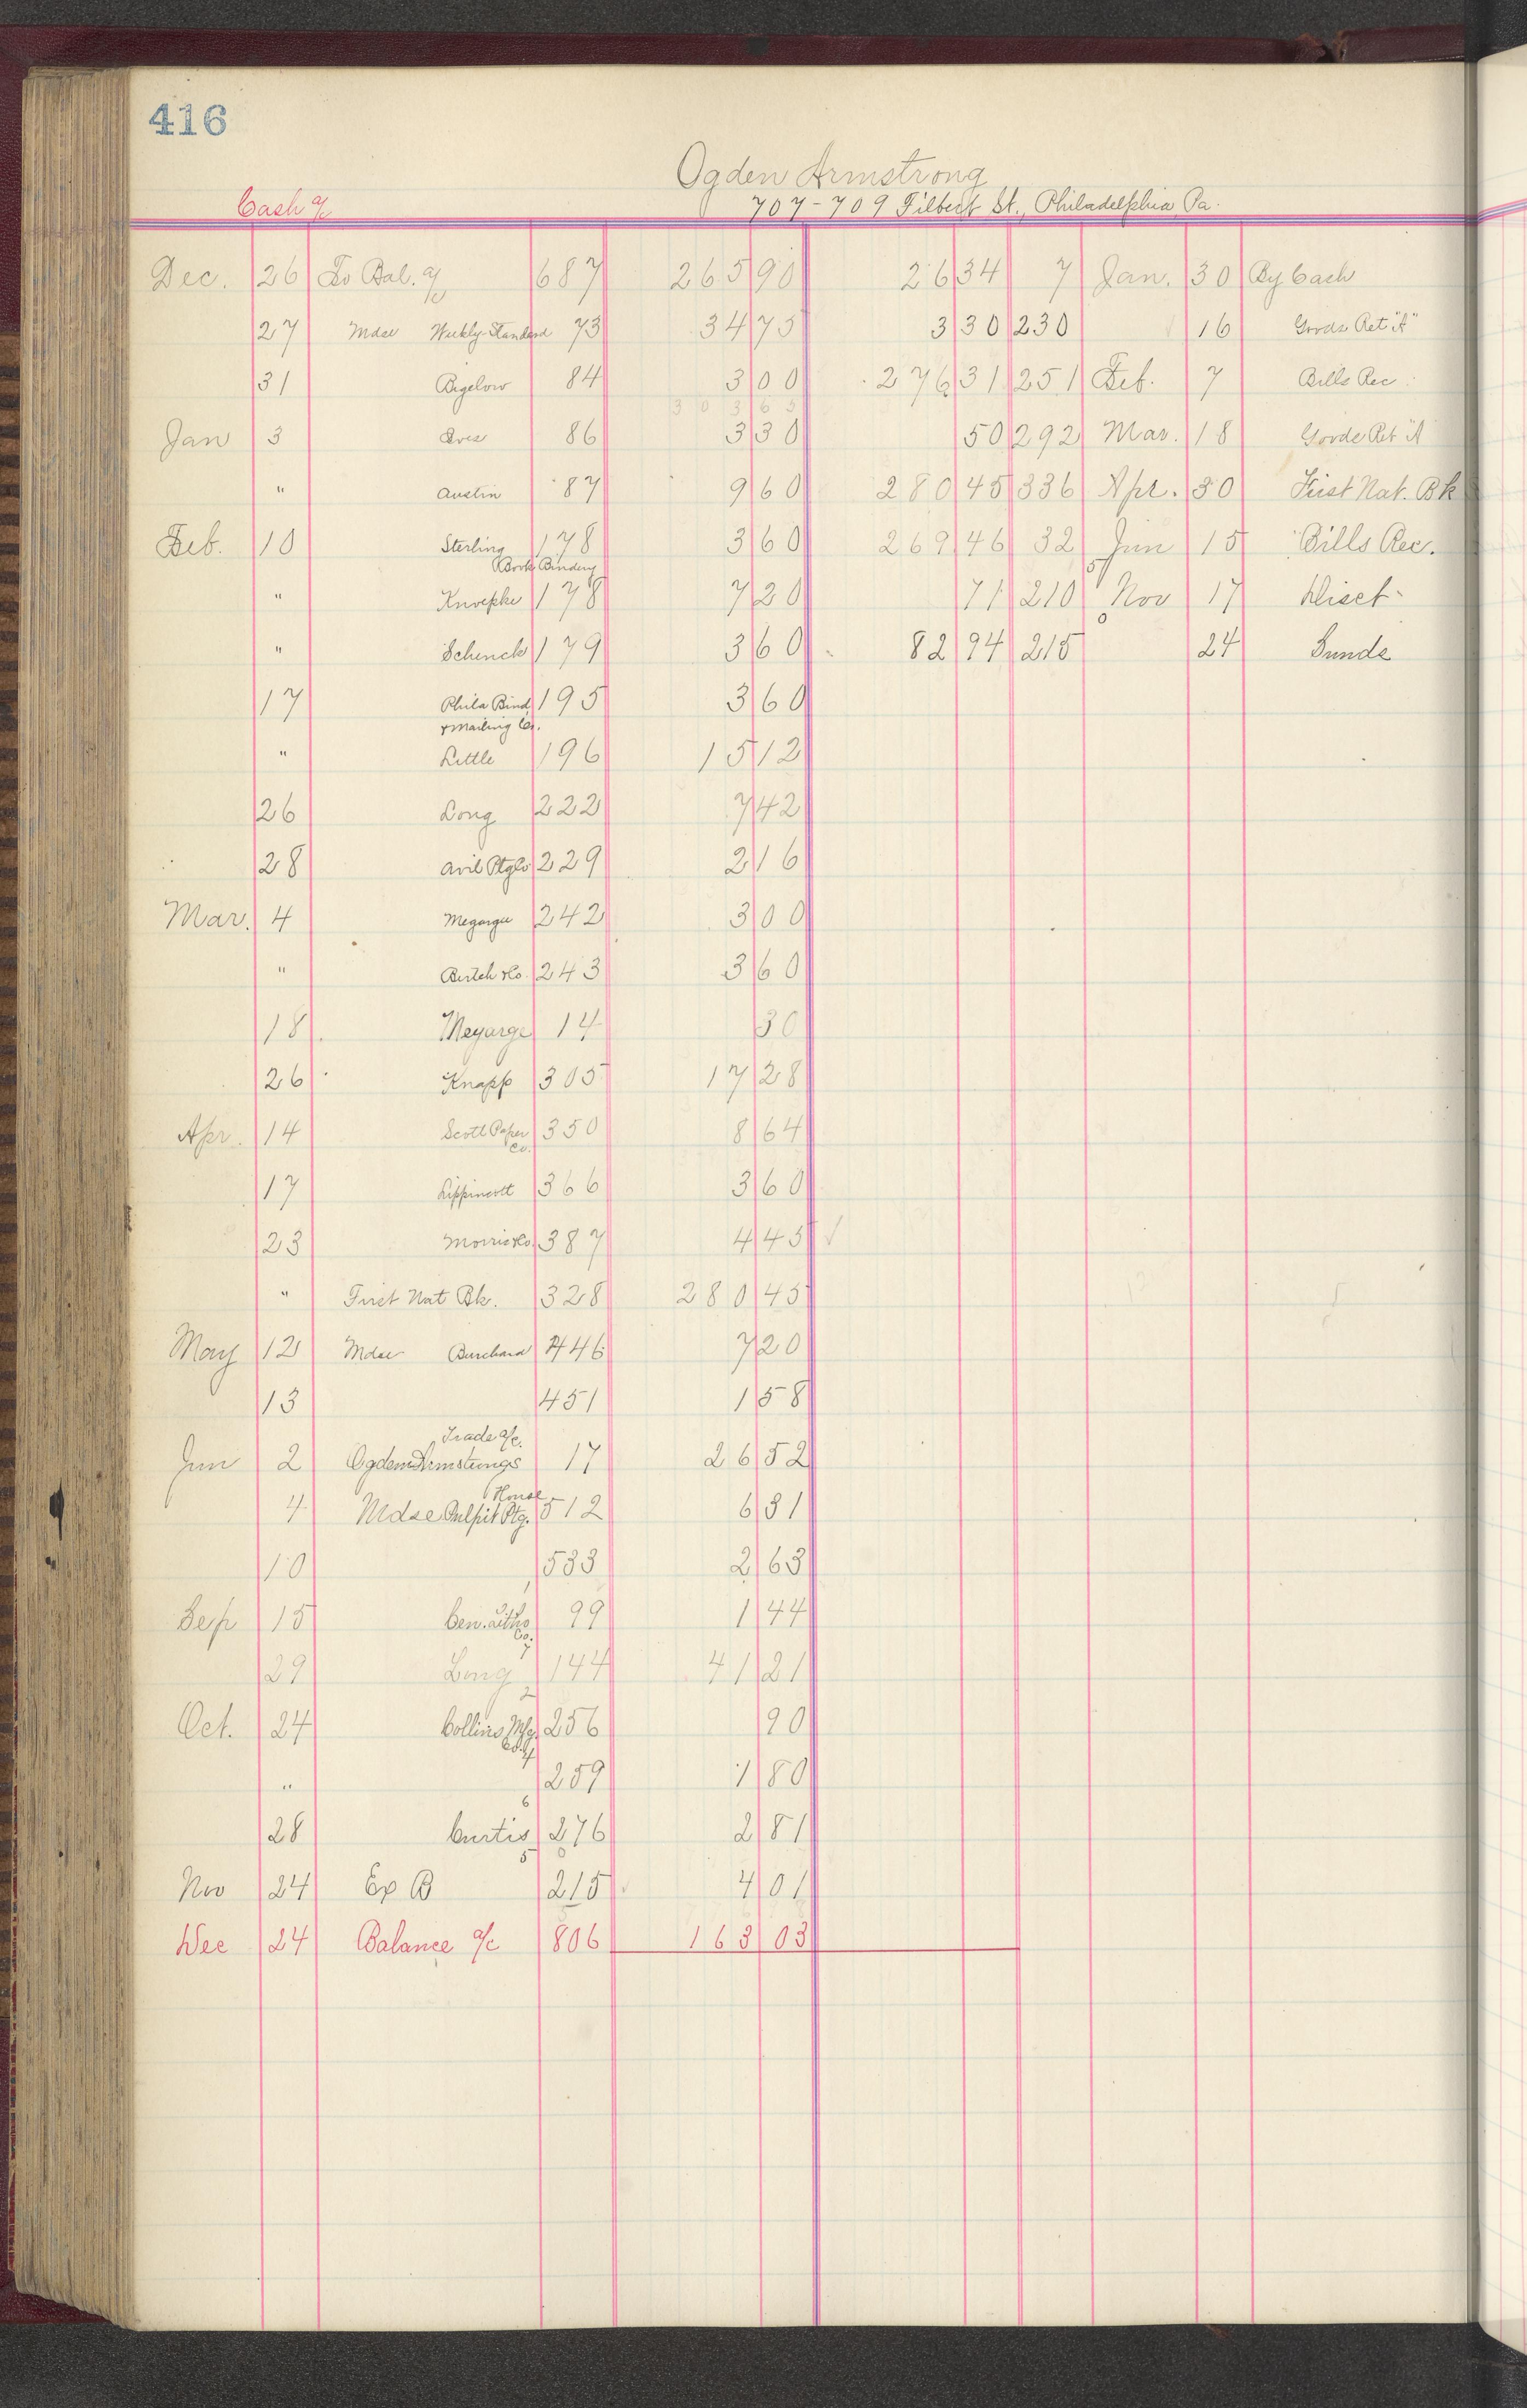 416
Ogden Armstrong
Cash a/c 707-709 Filbert St., Philadelphia Pa.
Dec. 26 To Bal. a/c 687 265 90 26 34 7 Jan. 30 By Cash
27 Mdse Weekly Standard 73 34 75 3 30 230 16 Goods Ret "A"
31 Bigelow 84 3 00 276 31 251 Feb. 7 Bills Rec.
303 65
Jan 3 Ives 86 3 30 50 292 Mar. 18 Goods Ret "A"
" Austin 87 9 60 280 45 336 Apr. 30 First Nat. Bk
Feb. 10 Sterling 178 3 60 269 46 32 Jun 15 Bills Rec.
Book Bindery
" Knoepke 178 7 20 71 210 Nov 17 Disct
" Schenck 179 3 60 82 94 215 24 Sunds
17 Phila Bind 195 3 60
& Mailing Co.
" Little 196 15 12
26 Long 222 7 42
28 Avil Ptg Co 229 2 16
Mar. 4 Megargee 242 3 00
" Burtch & Co. 243 3 60
18 Megarge 14 30
26 Knapp 305 17 28
Apr. 14 Scott Paper 350 8 64
Co.
17 Lippincott 366 3 60
23 Morris & Co. 387 4 45 ✓
" First Nat Bk. 328 280 45
May 12 Mdse Burchard 446 7 20
13 451 1 58
Trade a/c.
Jun 2 Ogden Armstrongs 17 26 52
House
4 Mdse Pulpit Ptg. 512 6 31
10 533 2 63
Sep 15 Cen. Litho 99 1 44
Co.
7
29 Long 144 41 21
2
Oct. 24 Collins Mfg. 256 90
Co. 4
" 259 1 80
6
28 Curtis 276 2 81
5 0
Nov 24 Ex B 215 4 01
Dec 24 Balance a/c 806 163 03